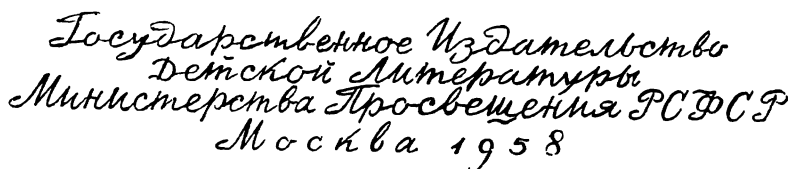 Государственное Издательство
Детской Литературы
Министерства Просвещения РСФСР
Москва 1958